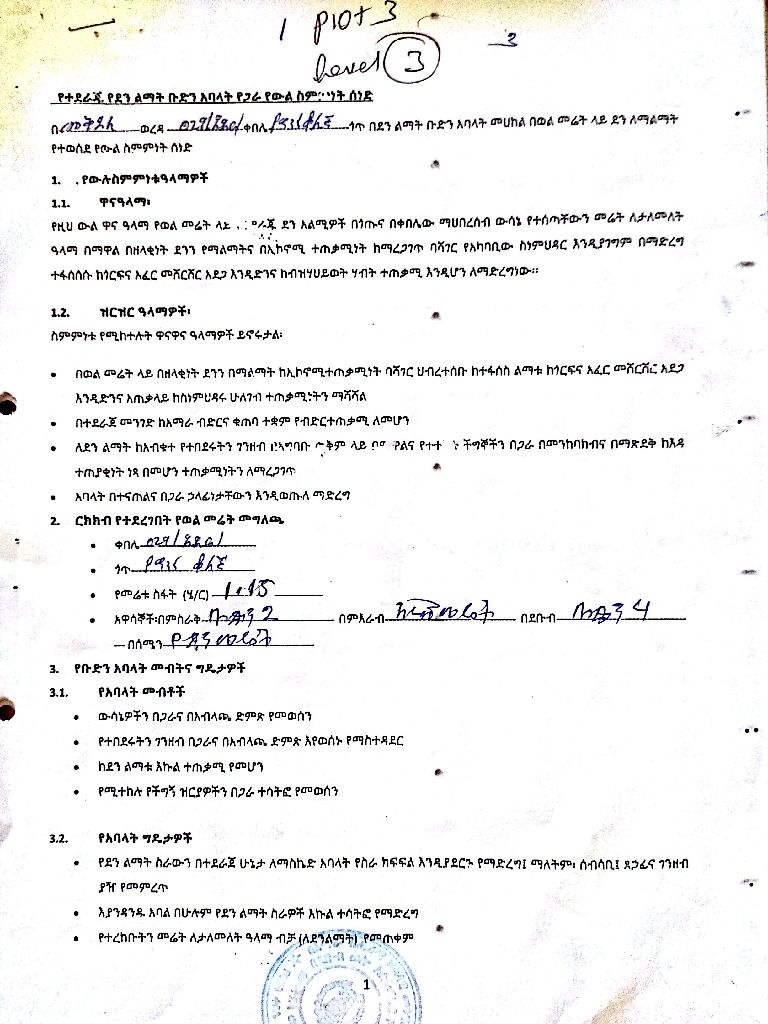 1 plot 3
3
Level 3
የተደራጁ የደን ልማት ቡድን አባላት የጋራ የውል ስምምነት ሰነድ
በ ወረዳ ቀበሌ ጎጥ በደን ልማት ቡድን አባላት መሀከል በወል መሬት ላይ ደን ለማልማት
የተወሰደ የውል ስምምነት ሰነድ
1. የውሉስምምነቱዓላማዎች
1.1. ዋናዓላማ፡
የዚህ ውል ዋና ዓላማ የወል መሬት ላይ ደን አልሚዎች በጎጡና በቀበሌው ማህበረሰብ ውሳኔ የተሰጣቸውን መሬት ለታለመለት
ዓላማ በማዋል በዘላቂነት ደንን የማልማትና በኢኮኖሚ ተጠቃሚነት ከማረጋገጥ ባሻገር የአካባቢው ስነምህዳር እንዲያገግም በማድረግ
ተፋሰሰሱ ከጎርፍና አፈር መሸርሸር አደጋ እንዲድንና ከብዝሃህይወት ሃብት ተጠቃሚ እንዲሆን ለማድረግነው።
1.2. ዝርዝር ዓላማዎች፡
ስምምነቱ የሚከተሉት ዋናዋና ዓላማዎች ይኖሩታል፡
• በወል መሬት ላይ በዘላቂነት ደንን በማልማት ከኢኮኖሚተጠቃሚነት ባሻገር ህብረተሰቡ ከተፋሰስ ልማቱ ከጎርፍና አፈር መሸርሸር አደጋ
እንዲድንና አጠቃላይ ከስነምህዳሩ ሁለገብ ተጠቃሚነትን ማሻሻል
• በተደራጀ መንገድ ከአማራ ብድርና ቁጠባ ተቋም የብድርተጠቃሚ ለመሆን
• ለደን ልማት ከአብቁተ የተበደሩትን ገንዘብ ላይ ችግኞችን በጋራ በመንከባከብና በማጽደቅ ከእዳ
ተጠያቂነት ነጻ በመሆን ተጠቃሚነትን ለማረጋገጥ
• አባላት በተናጠልና በጋራ ኃላፊነታቸውን እንዲወጡለ ማድረግ
2. ርክክብ የተደረገበት የወል መሬት መግለጫ
• ቀበሌ
• ጎጥ
• የመሬቱ ስፋት (ሄ/ር) 1.15
• አዋሳኞች፡በምስራቅ ቡድን 2 በምእራብ በደቡብ ቡድን 4
በሰሜን
3. የቡድን አባላት መብትና ግዴታዎች
3.1. የአባላት መብቶች
• ውሳኔዎችን በጋራና በአብላጫ ድምጽ የመወሰን
• የተበደሩትን ገንዘብ በጋራና በአብላጫ ድምጽ እየወሰኑ የማስተዳደር
• ከደን ልማቱ እኩል ተጠቃሚ የመሆን
• የሚተከሉ የችግኝ ዝርያዎችን በጋራ ተሳትፎ የመወሰን
3.2. የአባላት ግዴታዎች
• የደን ልማት ስራውን በተደራጀ ሁኔታ ለማስኬድ አባላት የስራ ክፍፍል እንዲያደርጉ የማድረግ፤ ማለትም፡ ሰብሳቢ፤ ጸኃፊና ገንዘብ
ያዥ የመምረጥ
• እያንዳንዱ አባል በሁሉም የደን ልማት ስራዎች እኩል ተሳትፎ የማድረግ
• የተረከቡትን መሬት ለታለመለት ዓላማ ብቻ (ለደንልማት) የመጠቀም
1